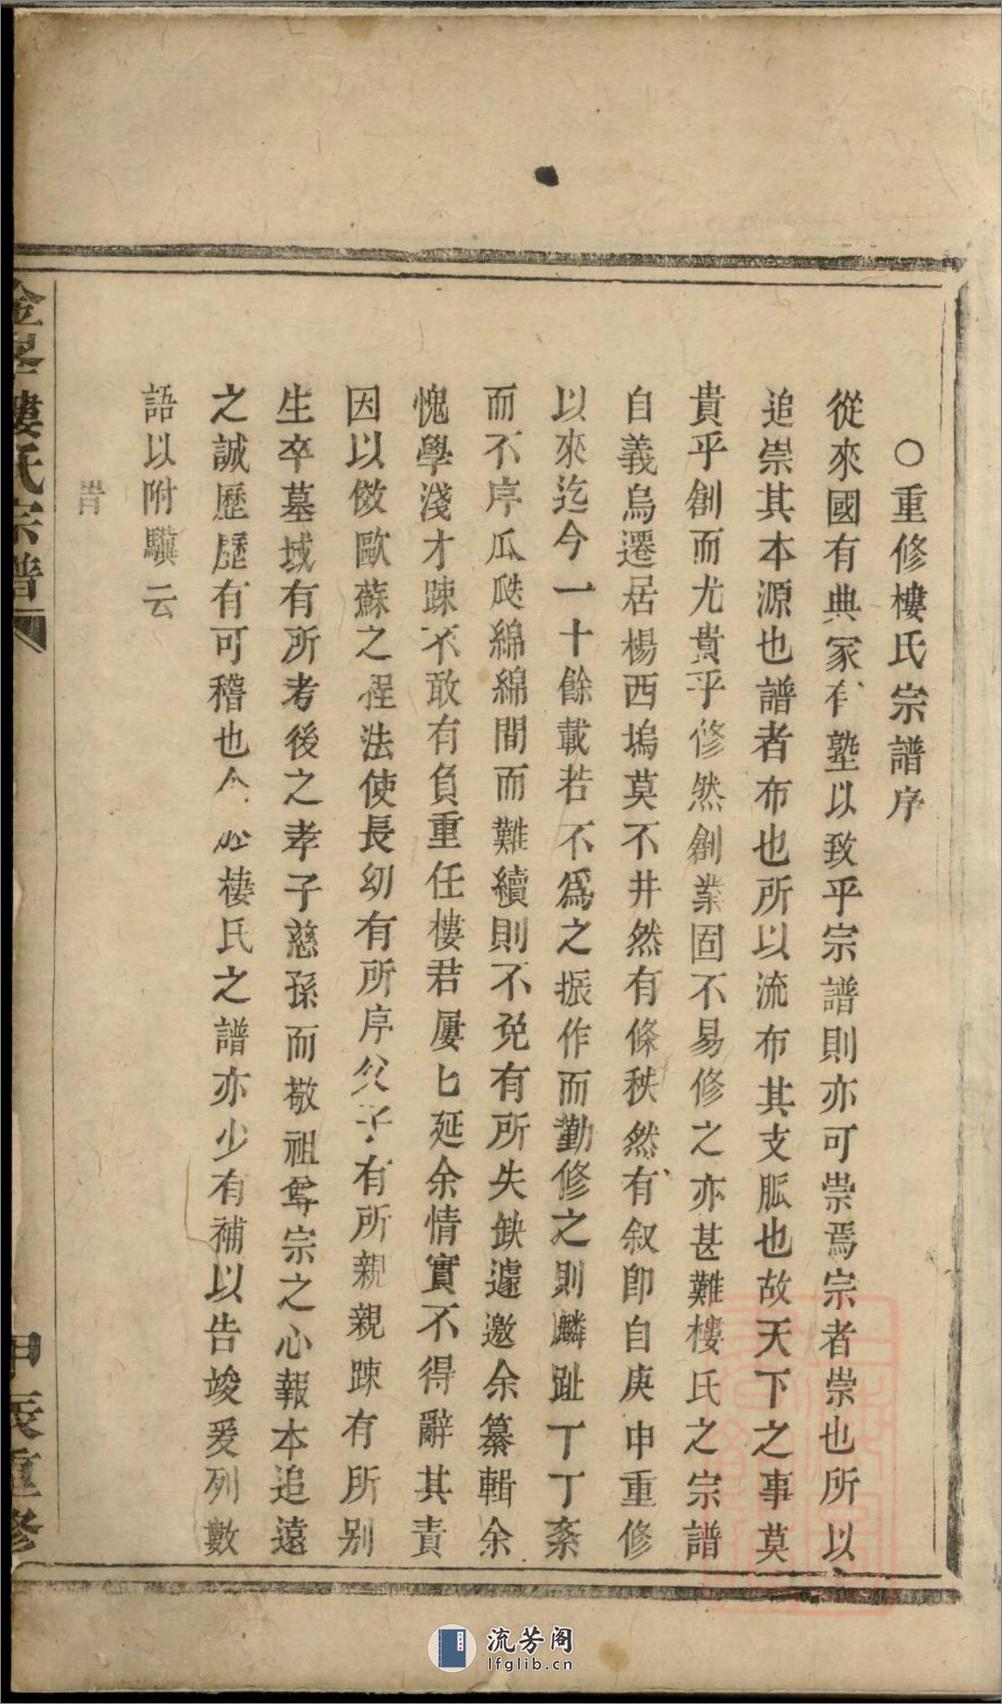 ○重修樓氏宗譜序
從來國有典家有塾以致乎宗譜則亦可崇焉宗者崇也所以
追崇其本源也譜者布也所以流布其支脈也故天下之事莫
貴乎創而尤貴乎修然創業固不易修之亦甚難樓氏之宗譜
自義烏遷居楊西塢莫不井然有條秩然有叙卽自庚申重修
以來迄今一十餘載若不爲之振作而勤修之則麟趾丁丁紊
而不序瓜瓞綿綿間而難續則不免有所失缺遽邀余纂輯余
愧學淺才踈不敢有負重任樓君屢匕延余情實不得辭其責
因以倣歐蘇之程法使長幼有所序父子有所親親踈有所别
生卒墓域有所考後之孝子慈孫而敬祖尊宗之心報本追遠
之誠歷歷有可稽也今 於樓氏之譜亦少有補以告竣爰列數
語以附驥云
旹
樓氏宗譜
甲辰重修
流芳阁
lfglib.cn